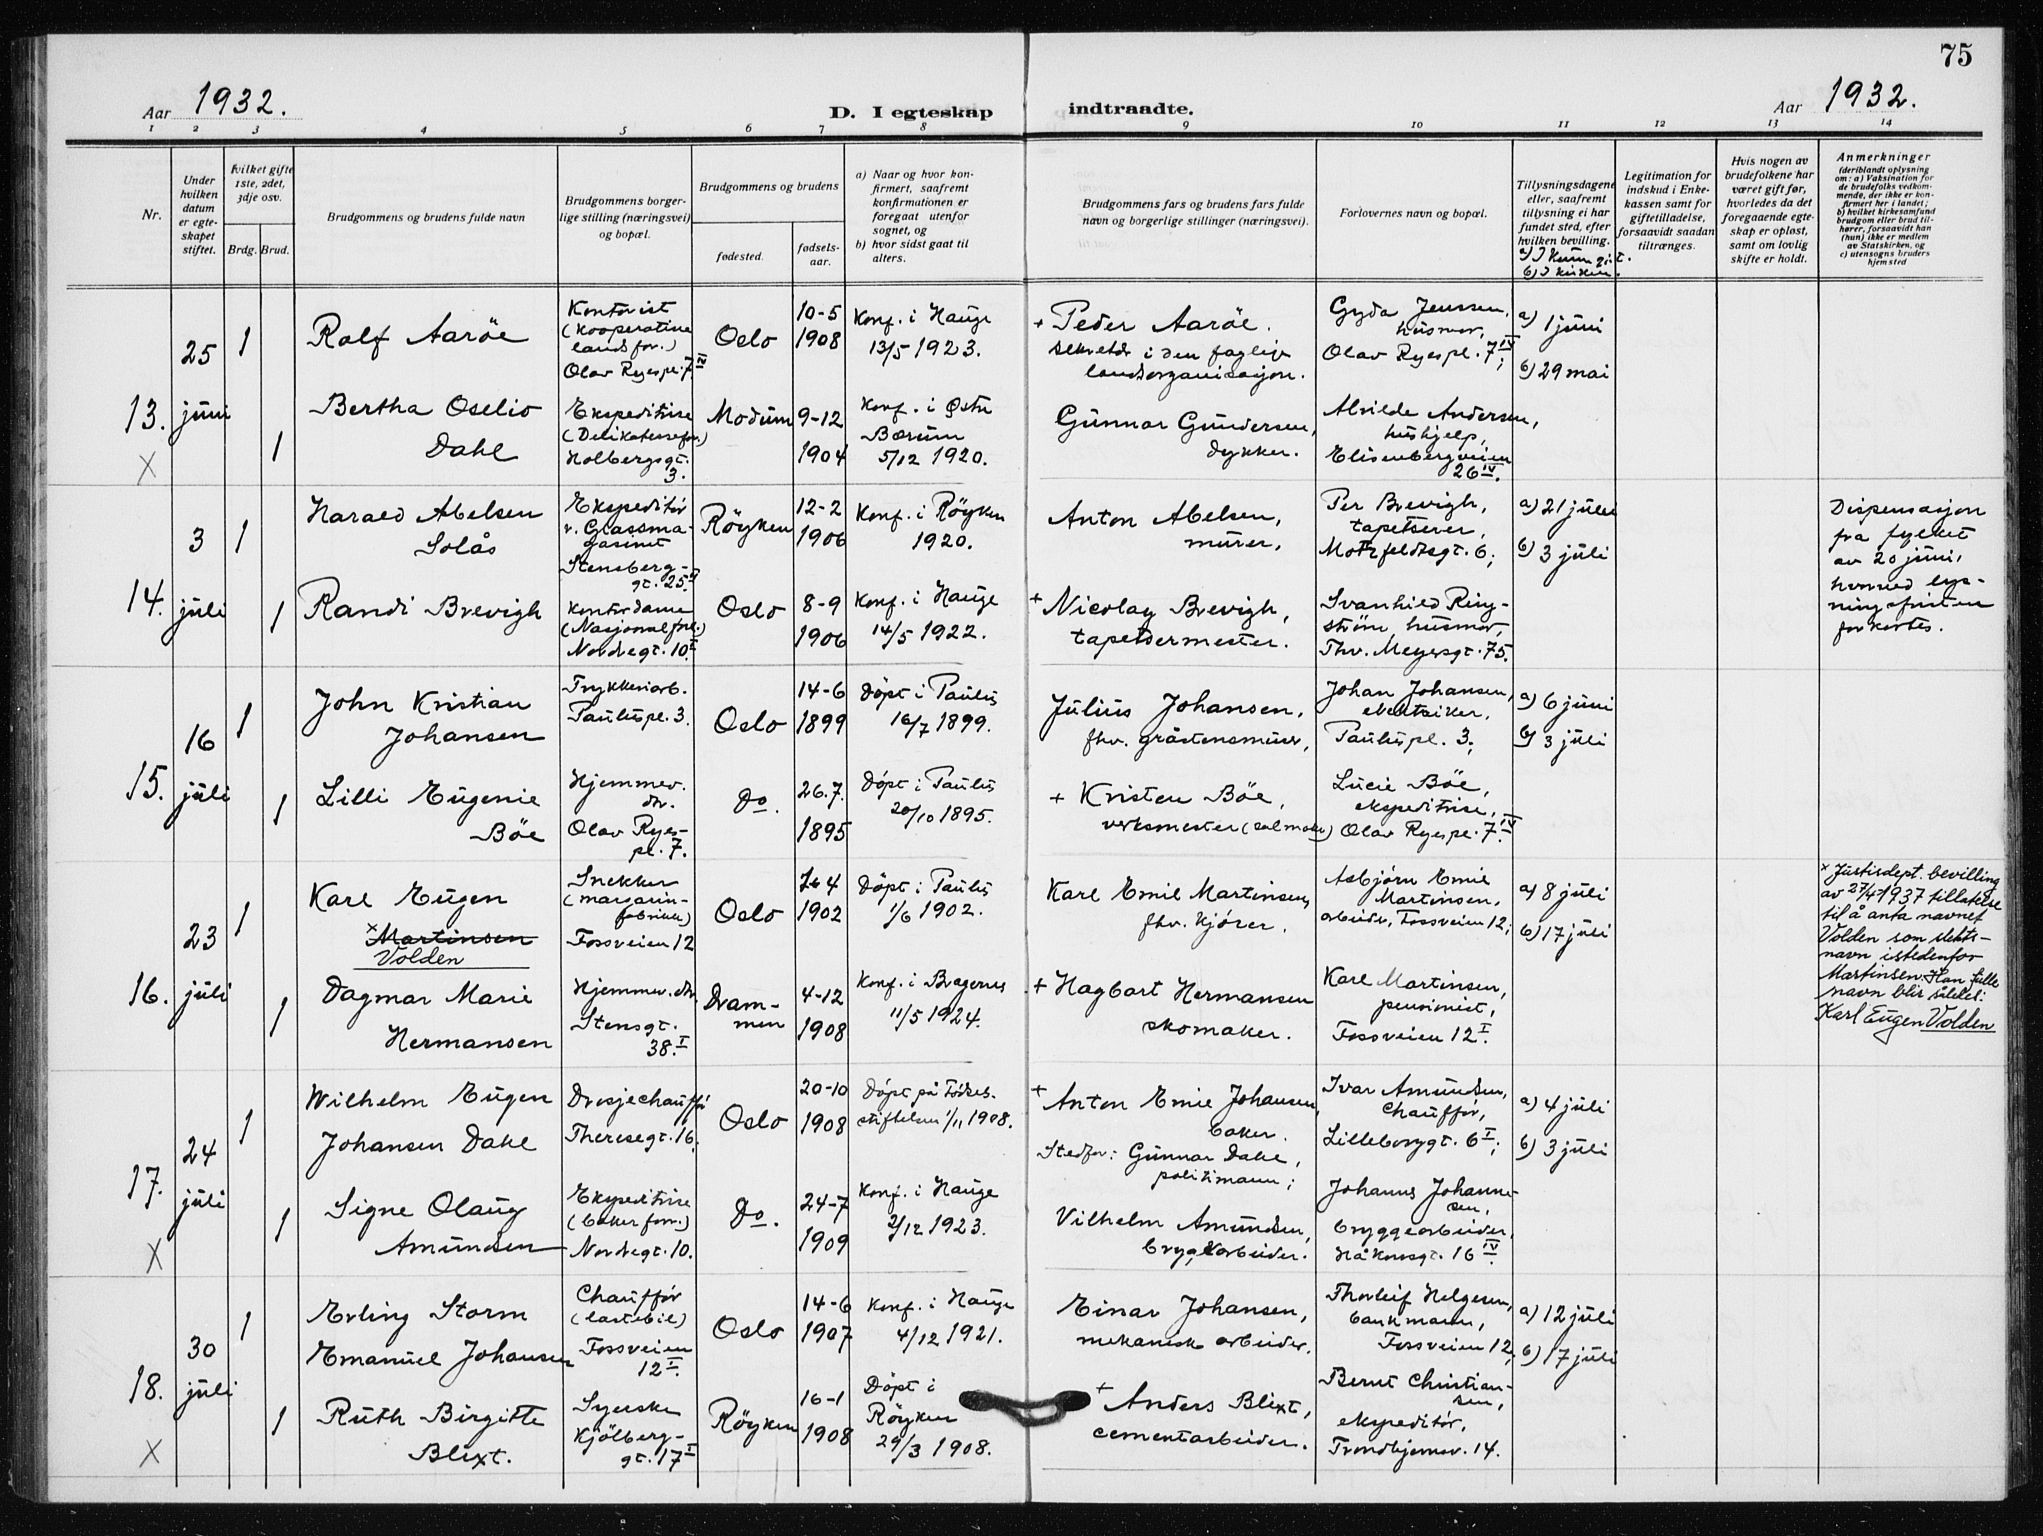 75
Aar 1932.
D. I egteskap indtraadte.
Aar 1932.
1 2 3 4 5 6 7 8 9 10 11 12 13 14
Nr.
Under
hvilken
datum
er egte-
skapet
stiftet.
hvilket gifte
1ste, 2det,
3dje osv.
Brdg. Brud.
Brudgommens og brudens fulde navn
Brudgommens borger-
lige stilling (næringsvei)
og bopæl.
Brudgommens og brudens
fødested.
fødsels-
aar.
a) Naar og hvor kon-
firmert, saafremt
konfirmationen er
foregaat utenfor
sognet, og
b) hvor sidst gaat til
alters.
Brudgommens fars og brudens fars fulde
navn og borgerlige stillinger (næringsvei).
Forlovernes navn og bopæl.
Tillysningsdagene
eller, saafremt
tillysning ei har
fundet sted, efter
hvilken bevilling.
b) I kirken.
Legitimation for
indskud i Enke-
kassen samt for
giftetilladelse,
forsaavidt saadan
tiltrænges.
Hvis nogen av
brudefolkene har
været gift før,
hvorledes da det
foregaaende egte-
skap er opløst,
samt om lovlig
skifte er holdt.
Anmerkninger
(deriblandt oplysning
om: a) Vaksination for
de brudefolks vedkom-
mende, der ikke er kon-
firmert her i landet;
b) hvilket kirkesamfund
brudgom eller brud til-
hører, forsaavidt han
(hun) ikke er medlem
av Statskirken, og
c) utensogns bruders
hjemsted
13.
X
25
juni
1
Rolf Aaröe
Kontorist
(Kooperative
landsfor.)
Olav Ryespl. 7 IV
Oslo
10-5
1908
Konf. i Hauge
13/5 1923.
+ Peder Aaröe.
sekretær i den faglige
landsorganisasjon.
Gyda Jenssen,
husmor,
Olav Ryespl. 7 IV;
a) 1 juni
b) 29 mai
1
Bertha Oselio
Dahl
Ekspeditrise
(Delikatessefor.)
Holbergsgt.
3.
Modum
9-12
1904
Konf. i Østre
Bærum
5/12 1920.
Gunnar Gundersen,
dykker.
Alvilde Andersen,
hushjelp,
Elisenbergveien
26 IV.
14.
3
juli
1
Harald Abelsen
Solås
Ekspeditör
v. Glassma-
gasinet
Stensberg-
gt. 25
Röyken
12-2
1906
Konf. i Röyken
1920.
Anton Abelsen,
murer.
Per Brevigh,
tapetserer,
Motzfeldtsgt. 6;
a) 21 juli
b) 3 juli
Dispensasjon
fra fylket
av 20 juni,
hvorved lys-
ningsfristen
forkortes.
1
Randi Brevigh
Kontordame
Nordregt. 10 I
Oslo
8-9
1906
Konf. i Hauge
14/5 1922.
+ Nicolay Brevigh,
tapetsermester.
Svanhild Ring-
ström husmor,
Thv. Meyersgt. 75.
15.
16
juli
1
John Kristian
Johansen
Trykkeriarb.
Pauluspl. 3.
Oslo
14-6
1899
Döpt i Paulus
16/7 1899.
Julius Johansen,
fhv. gråstensmurer,
Johan Johansen,
elektriker,
Pauluspl. 3;
a) 6 juni
b) 3 juli
1
Lilli Eugenie
Böe
Hjemmev.
dr.
Olav Ryes-
pl. 7.
Do.
26.7.
1895
Döpt i Paulus
20/10 1895.
+ Kristen Böe,
verksmester (salmaker)
Lucie Böe,
ekspeditrise,
Olav Ryespl. 7 IV.
16.
23
juli
1
Karl Eugen
x Martinsen
Volden
Snekker
(margarin-
fabrikk)
Fossveien 12
Oslo
1902
Döpt i Paulus
1/6 1902.
Karl Emil Martinsen,
fhv. kjörer.
Asbjörn Emil
Martinsen,
arbeider, Fossveien 12;
a) 8 juli
b) 17 juli
x Justisdept. bevilling
av 27/4-1937 tillatelse
til å anta navnet
Volden som slekts-
navn istedenfor
Martinsen. Han fulle
navn blir således:
Karl Eugen Volden
1
Dagmar Marie
Hermansen
Hjemmev. dr.
Stensgt.
38. I
Dram-
men
4-12
1908
Konf. i Bragernes
11/5 1924.
+ Hagbart Hermansen
skomaker.
Karl Martinsen,
pensionist,
Fossveien 12 I.
17.
X
24
juli
1
Wilhelm Eugen
Johansen Dahl
Drosjechaufför
Theresegt. 16.
Oslo
20-10
1908
Döpt på Födsels-
stiftelsen 1/11 1908.
+ Anton Emil Johansen,
baker.
Stedfor: Gunnar Dahl,
politimann;
Ivar Amundsen,
Chaufför,
Lilleborggt. 6 I;
a) 4 juli
b) 3 juli
1
Signe Olaug
Amundsen
Ekspeditrise
(bakerforr.)
Nordregt. 10.
Do.
24-7
1909
Konf. i Hauge
2/12 1923.
Vilhelm Amundsen,
bryggearbeider.
Johannes Johanne-
sen,
bryggearbeider,
Håkonsgt. 16 IV.
18.
X
30
juli
1
Erling Storm
Emanuel Johansen
Chaufför
(lastebil)
Fossveien
12 I.
Oslo
14-6
1907
Konf. i Hauge
4/12 1921.
Einar Johansen,
mekanisk arbeider.
Thorleif Helgesen,
bankmann,
Fossveien 12;
a) 12 juli
b) 17 juli
1
Ruth Birgitte
Blixt.
Syerske
Kjölberg-
gt. 17 I
Röyken
16-1
1908
Döpt i
Röyken
29/3 1908.
+ Anders Blixt,
cementarbeider.
Bernt Christian-
sen,
ekspeditör,
Trondhjemsv. 14.